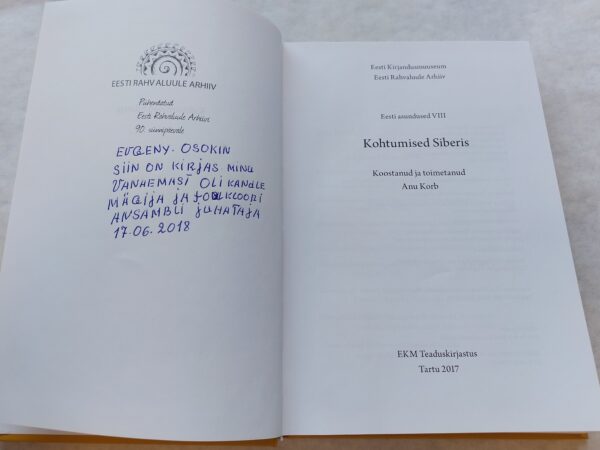 EESTI RAHVALUULE ARHIIV
Pühendatud
Eesti Rahvaluule Arhiivi
90. sünnipäevale
EVGENY. OSOKIN
SIIN ON KIRJAS MINU
VANHEMAST OLI KANDLE
MÄGIJA JA FOLKLOORI
ANSAMBLI JUHATAJA
17.06.2018
Eesti Kirjandusmuuseum
Eesti Rahvaluule Arhiiv
Eesti asundused VIII
Kohtumised Siberis
Koostanud ja toimetanud
Anu Korb
EKM Teaduskirjastus
Tartu 2017